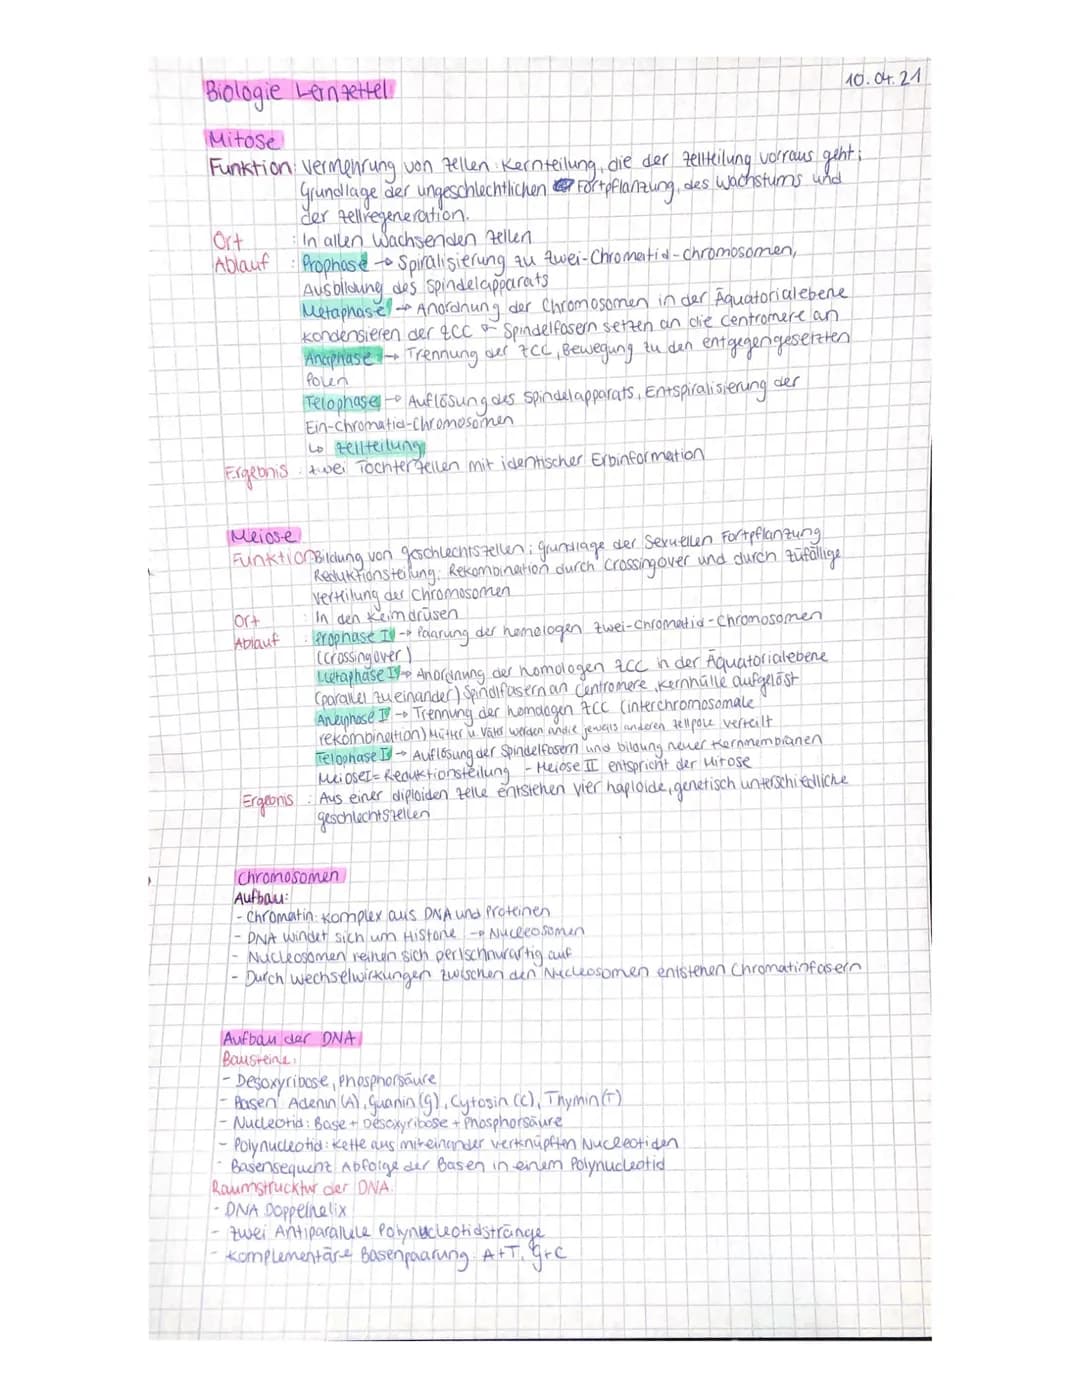 Biologie Lernzettel
10.04.21
Mitose
Funktion: Vermehrung von Zellen. Kernteilung, die der Zellteilung vorraus geht;
Grundlage der ungeschlechtlichen Fortpflanzung, des Wachstums und
der Zellregeneration.
Ort : In allen Wachsenden Zellen
Ablauf : Prophase → Spiralisierung zu Zwei-Chromatid-Chromosomen,
Ausbildung des Spindelapparats
Metaphase → Anordnung der Chromosomen in der Äquatorialebene
Kondensieren der ZCC Spindelfasern setzen an die Centromere an
Anaphase → Trennung der ZCC, Bewegung zu den entgegengesetzten
Polen
Telophase → Auflösung des Spindelapparats, Entspiralisierung der
Ein-Chromatid-Chromosomen
↳ Zellteilung
Ergebnis : Zwei Tochterzellen mit identischer Erbinformation
Meiose
Funktion Bildung von Geschlechtszellen; Grundlage der Sexuellen Fortpflanzung
Reduktionsteilung; Rekombination durch Crossingover und durch zufällige
Verteilung der Chromosomen
Ort : In den Keimdrüsen
Ablauf : Prophase I → Paarung der homologen Zwei-Chromatid-Chromosomen
(Crossingover)
Metaphase I → Anordnung der homologen ZCC in der Äquatorialebene
(parallel zueinander) Spindlfasern an Centromere, Kernhülle aufgelöst
Anaphase I → Trennung der homologen ZCC (interchromosomale
rekombination) Mütter u. Väter werden an die jeweils anderen Zellpole verteilt
Telophase I → Auflösung der Spindelfasern und bildung neuer Kernmembranen
Meiose I = Reduktionsteilung - Meiose II entspricht der Mitose
Ergebnis : Aus einer diploiden Zelle entstehen vier haploide, genetisch unterschiedliche
Geschlechtszellen
Chromosomen
Aufbau:
- Chromatin: Komplex aus DNA und Proteinen
- DNA windet sich um Histone → Nucleosomen
- Nucleosomen reihen sich perlschnurartig auf
- Durch Wechselwirkungen zwischen den Nucleosomen entstehen Chromatinfasern
Aufbau der DNA
Bausteine:
- Desoxyribose, Phosphorsäure
- Basen Adenin (A), Guanin (G), Cytosin (C), Thymin (T)
- Nucleotid: Base + Desoxyribose + Phosphorsäure
- Polynucleotid: Kette aus miteinander verknüpften Nucleotiden
- Basensequenz Abfolge der Basen in einem Polynucleotid
Raumstrucktur der DNA.
- DNA Doppelhelix
- Zwei Antiparallele Polynucleotidstränge
- Komplementäre Basenpaarung A+T, G+C